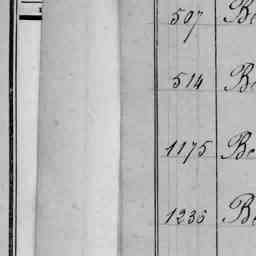 507 Be
514 Be
1175 Be
1236 Be